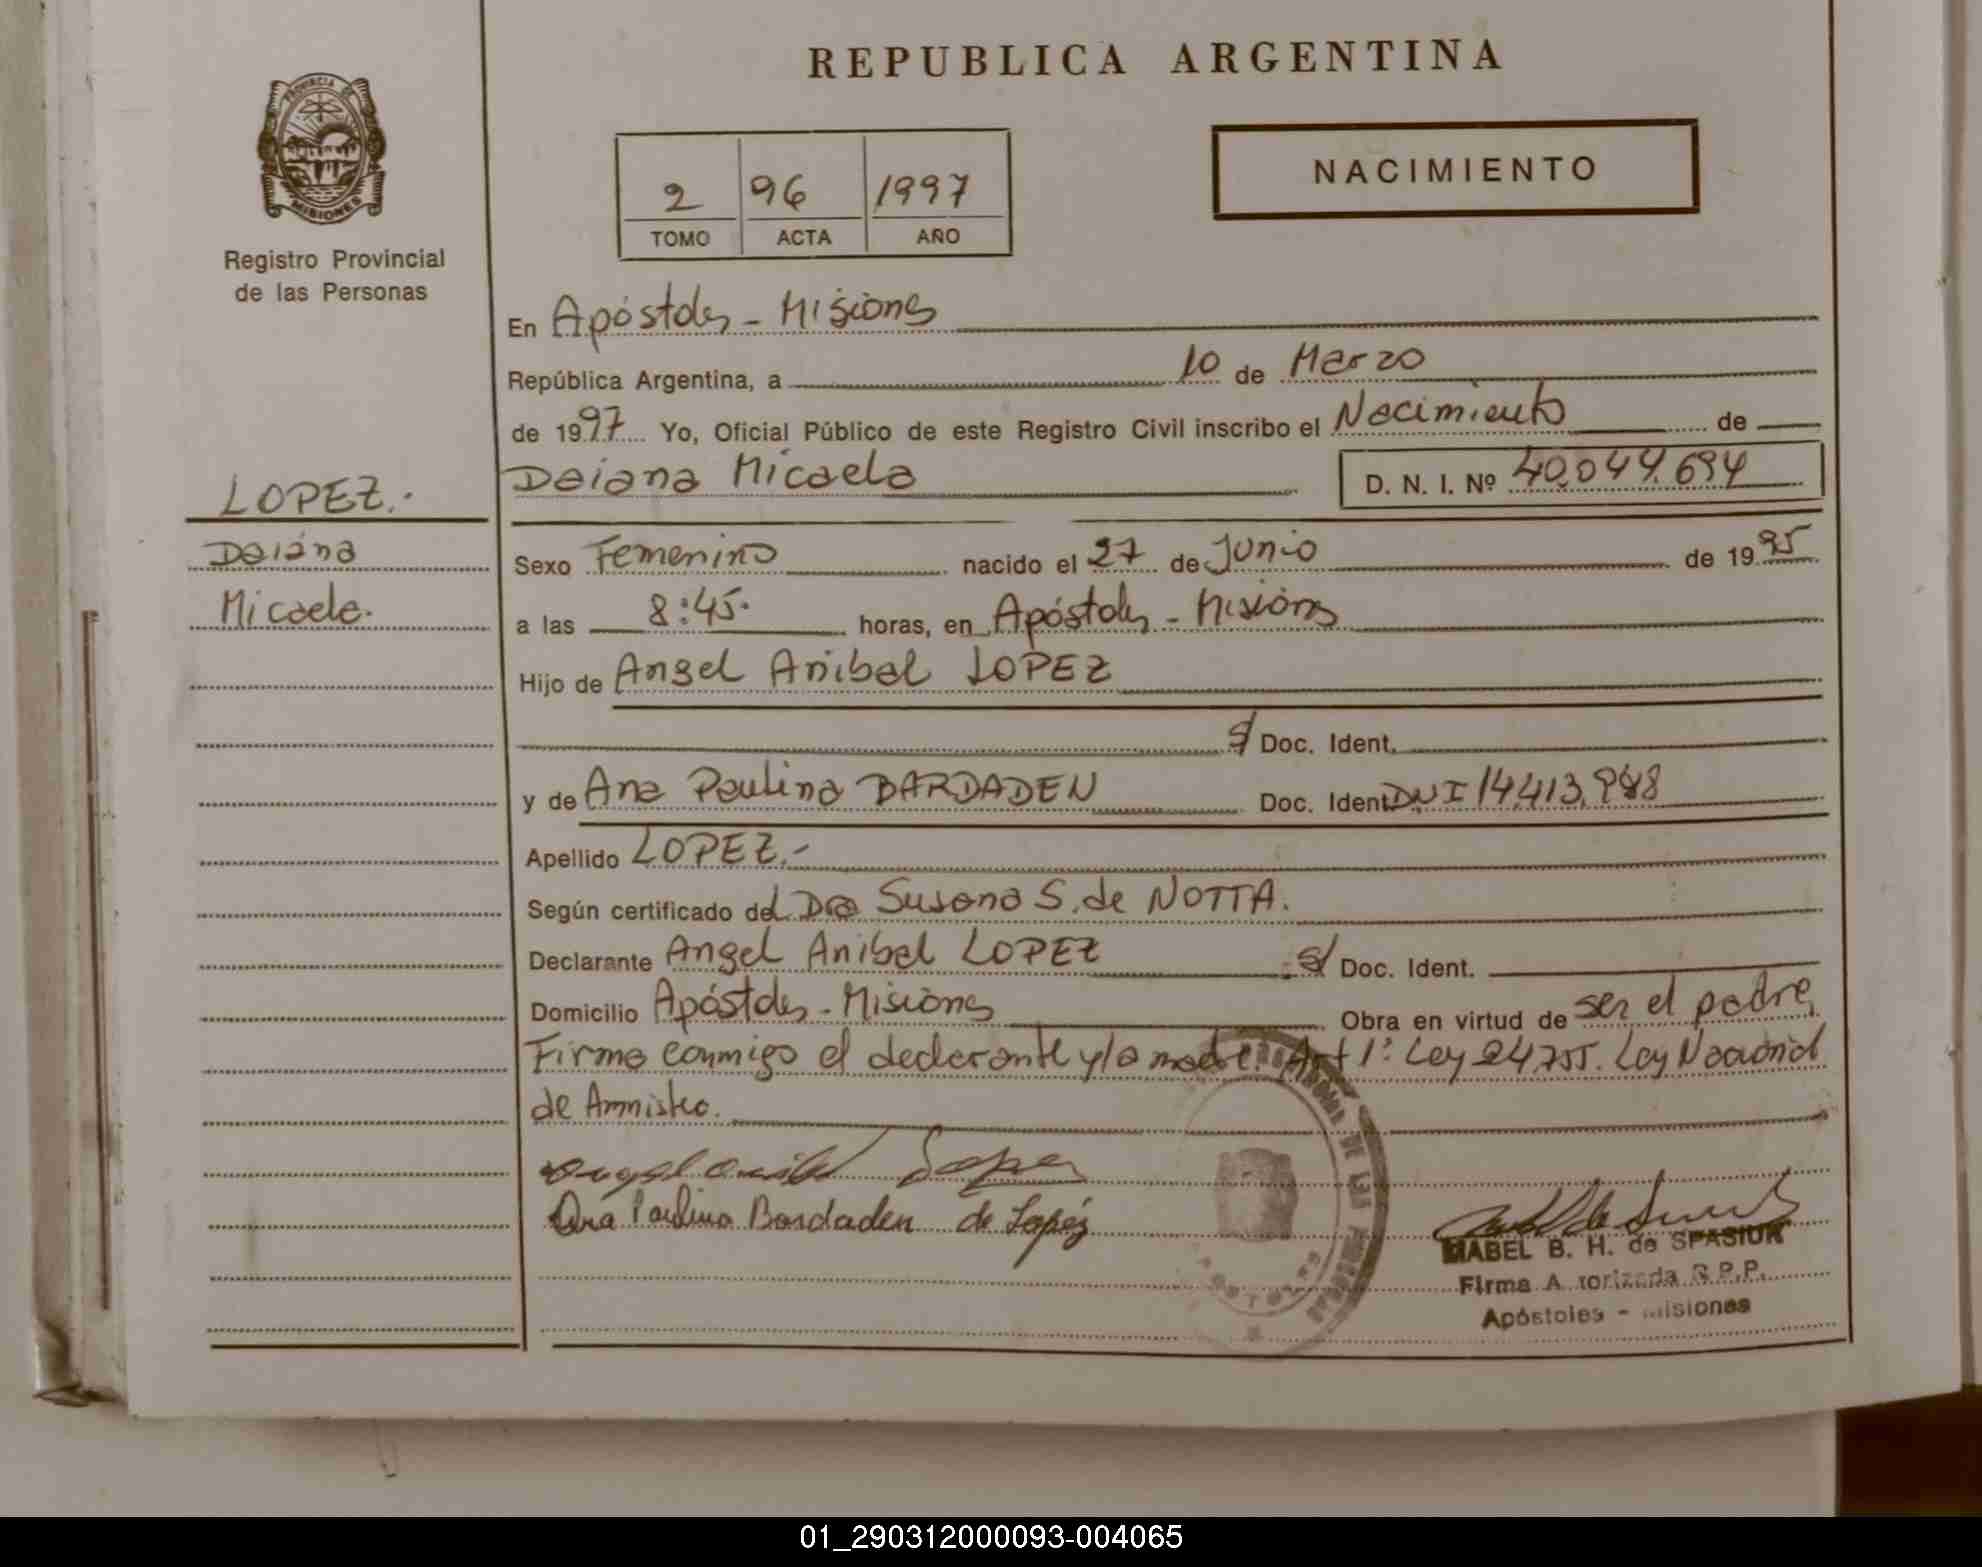 REPUBLICA ARGENTINA
PROVINCIA DE
MISIONES
Registro Provincial
de las Personas
NACIMIENTO
2 96 1997
TOMO ACTA AÑO
En Apóstoles - Misiones
República Argentina, a 10 de Marzo
de 1997 Yo, Oficial Público de este Registro Civil inscribo el Nacimiento de
Daiana Micaela D. N. I. Nº 40.044.694
LOPEZ.-
Daiana
Micaela.
Sexo Femenino nacido el 27 de Junio de 1995
a las 8:45. horas, en Apóstoles - Misiones
Hijo de Angel Anibal LOPEZ
s/ Doc. Ident.
y de Ana Paulina BARDADEN Doc. Ident DNI 14.413.
Apellido LOPEZ.-
Según certificado del Dra Susana S. de NOTTA.
Declarante Angel Anibal LOPEZ s/ Doc. Ident.
Domicilio Apóstoles - Misiones Obra en virtud de ser el padre,
Firma conmigo el declarante y la madre. Art 1º Ley 24.755. Ley Nacional
de Amnistia.
Angel Anibal Lopez
Ana Paulina Bardaden de Lopéz
DE LAS PERSONAS
APOSTOLES
MABEL B. H. de SPASIUK
Firma Autorizada R.P.P.
Apóstoles - Misiones
01_290312000093-004065